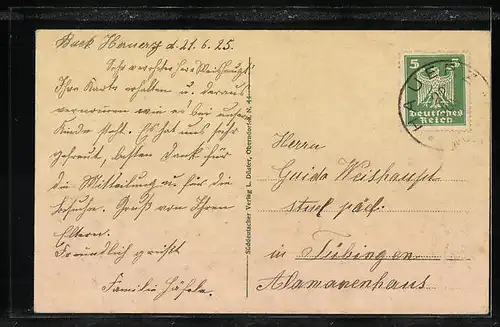 Back Hauerz d. 21.6.25.
Sehr verehrter Herr Weishaupt!
Ihre Karte erhalten u. daraus
vernommen wie es bei unser
Kinde steht. Es hat uns sehr
gefreut, besten Dank für
die Mitteilung u. für die
Besuche. Gruß von Ihren
Eltern.
Freundlich grüßt
Familie Häfele.
Süddeutscher Verlag L. Düster, Oberndorf a. N. 44
5 5
Deutsches
Reich
HAUERZ
Herrn
Guido Weishaupt
stud. päd.
in Tübingen
Alamanenhaus